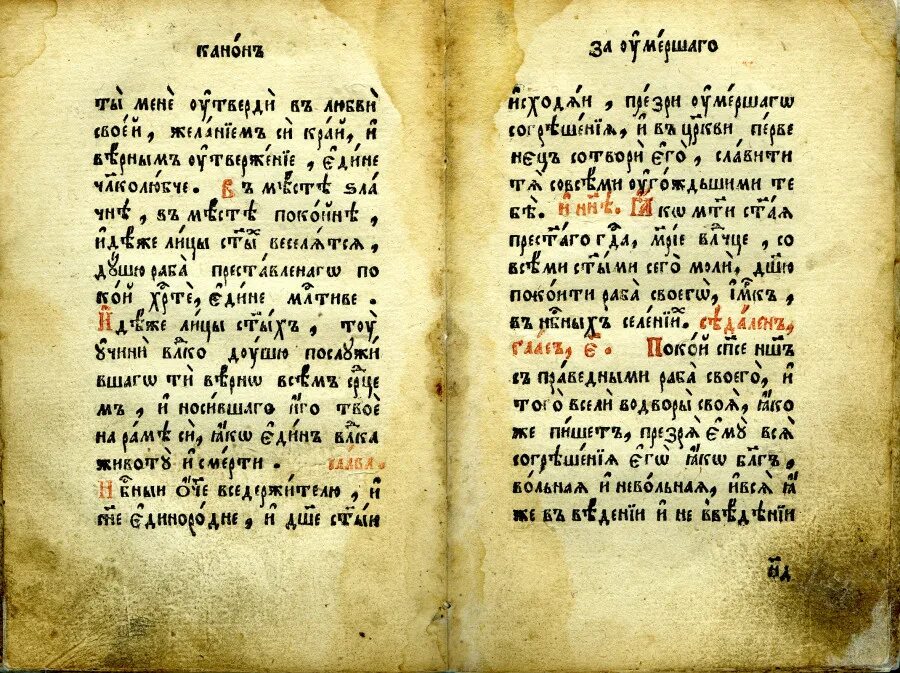 канѡ́нъ
ты̀ менѐ ᲂу҆твердѝ въ любвѝ
свое́й, жела́нїемъ сѝ кра́й, и҆
вѣ́рнымъ ᲂу҆твержє́нїе, є҆ди́не
чл҃колю́бче. В ъ мѣ́стѣ ѕла́
чнѣ, въ мѣ́стѣ поко́йнѣ,
и҆дѣ́же ли́цы ст҃ы́хъ веселѧ́тсѧ,
дꙋ́шю раба̀ преста́вленагѡ по
ко́й хрⷭ҇тѐ, є҆ди́не млⷭ҇тиве.
И҆ дѣ́же ли́цы ст҃ы́хъ, тоу̀
ᲂу҆чинѝ влⷣко доу́шю послꙋжи́
вшагѡ тѝ вѣ́рнѡ всѣ́мъ срⷣце
мъ, и҆ носи́вшаго и҆́го твоѐ
на ра́мѣ сѝ, ꙗ҆́кѡ є҆ди́нъ влⷣка
животꙋ̀ и҆ сме́рти. сла́ва.
Н бⷭ҇ныи ѻ҆́ч҃е вседержи́телю, и҆
сн҃е є҆диноро́дне, и҆ дш҃е ст҃ы́и
за ᲂу҆ме́ршаго
и҆сходѧ́и, пре́зри ᲂу҆ме́ршагѡ
согрѣше́нїѧ, и҆ въ цр҃кви пе́рве
не́цъ сотворѝ є҆го̀, сла́вити
тѧ̀ совсѣ́ми ᲂу҆го́ждьшими те
бѣ̀. и҆ нн҃ѣ. Ꙗ҆́ кѡ мт҃и ст҃а́ѧ
прест҃а́го гдⷭ҇а, мр҃і́е влⷣчце, со
всѣ́ми ст҃ы́ми сего̀ молѝ, дш҃ю
поко́ити раба̀ своегѡ̀, і҆мⷬ҇къ,
въ нбⷭ҇ныхъ селе́нїи. сѣда́ленъ,
гла́съ, є҃. П око́й сп҃се нш҃ъ
съ пра́ведными раба̀ своего̀, и҆
того̀ вселѝ во дворы̀ своѧ̀, ꙗ҆́ко
же пи́шетъ, презрѧ̀ є҆мꙋ̀ всѧ̀
согрѣше́нїѧ є҆гѡ̀ ꙗ҆́кѡ бл҃гъ,
во́льнаѧ и҆ нево́льнаѧ, и҆всѧ̀ ꙗ҆̀
же въ вѣ́денїи и҆ не в̾вѣ́дѣнїи
н҃д